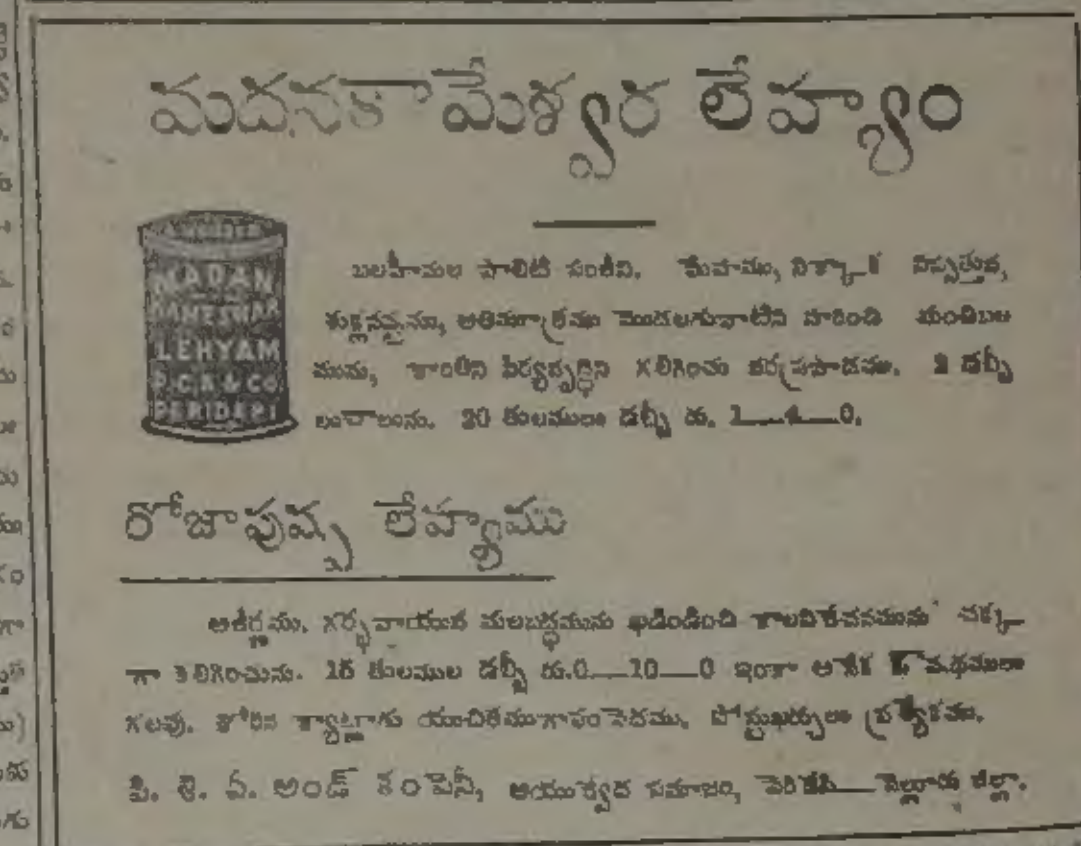 మదనకామేశ్వర లేహ్యం
MADAN
KAMESWAR
LEHYAM
P.C.S & CO
PERIDEPI
బలహీనుల పాలిటి సంజీవి. మేహము, నిస్సత్తువ,
శుక్లనష్టము, అతిమూత్రము మొదలగువాటిని హరించి మంచిబల
మును, కాంతిని వీర్యవృద్ధిని కలిగించు 2 డబ్బీ
లుచాలును. 20 తులముల డబ్బీ రు. 1—4—0.
రోజాపుష్ప లేహ్యము
అజీర్ణము, మలబద్ధమును ఖండించి కాలవిరేచనమును చక్క
గా కలిగించును. 15 తులముల డబ్బీ రు.0—10—0 ఇంకా అనేక ఔషధములు
గలవు. కోరిన క్యాట్లాగు యుచితముగాపం పెదము. పోస్టుఖర్చులు ప్రత్యేకము.
పి. అండ్ కంపెనీ, ఆయుర్వేద సమాజం, నెల్లూరు జిల్లా.